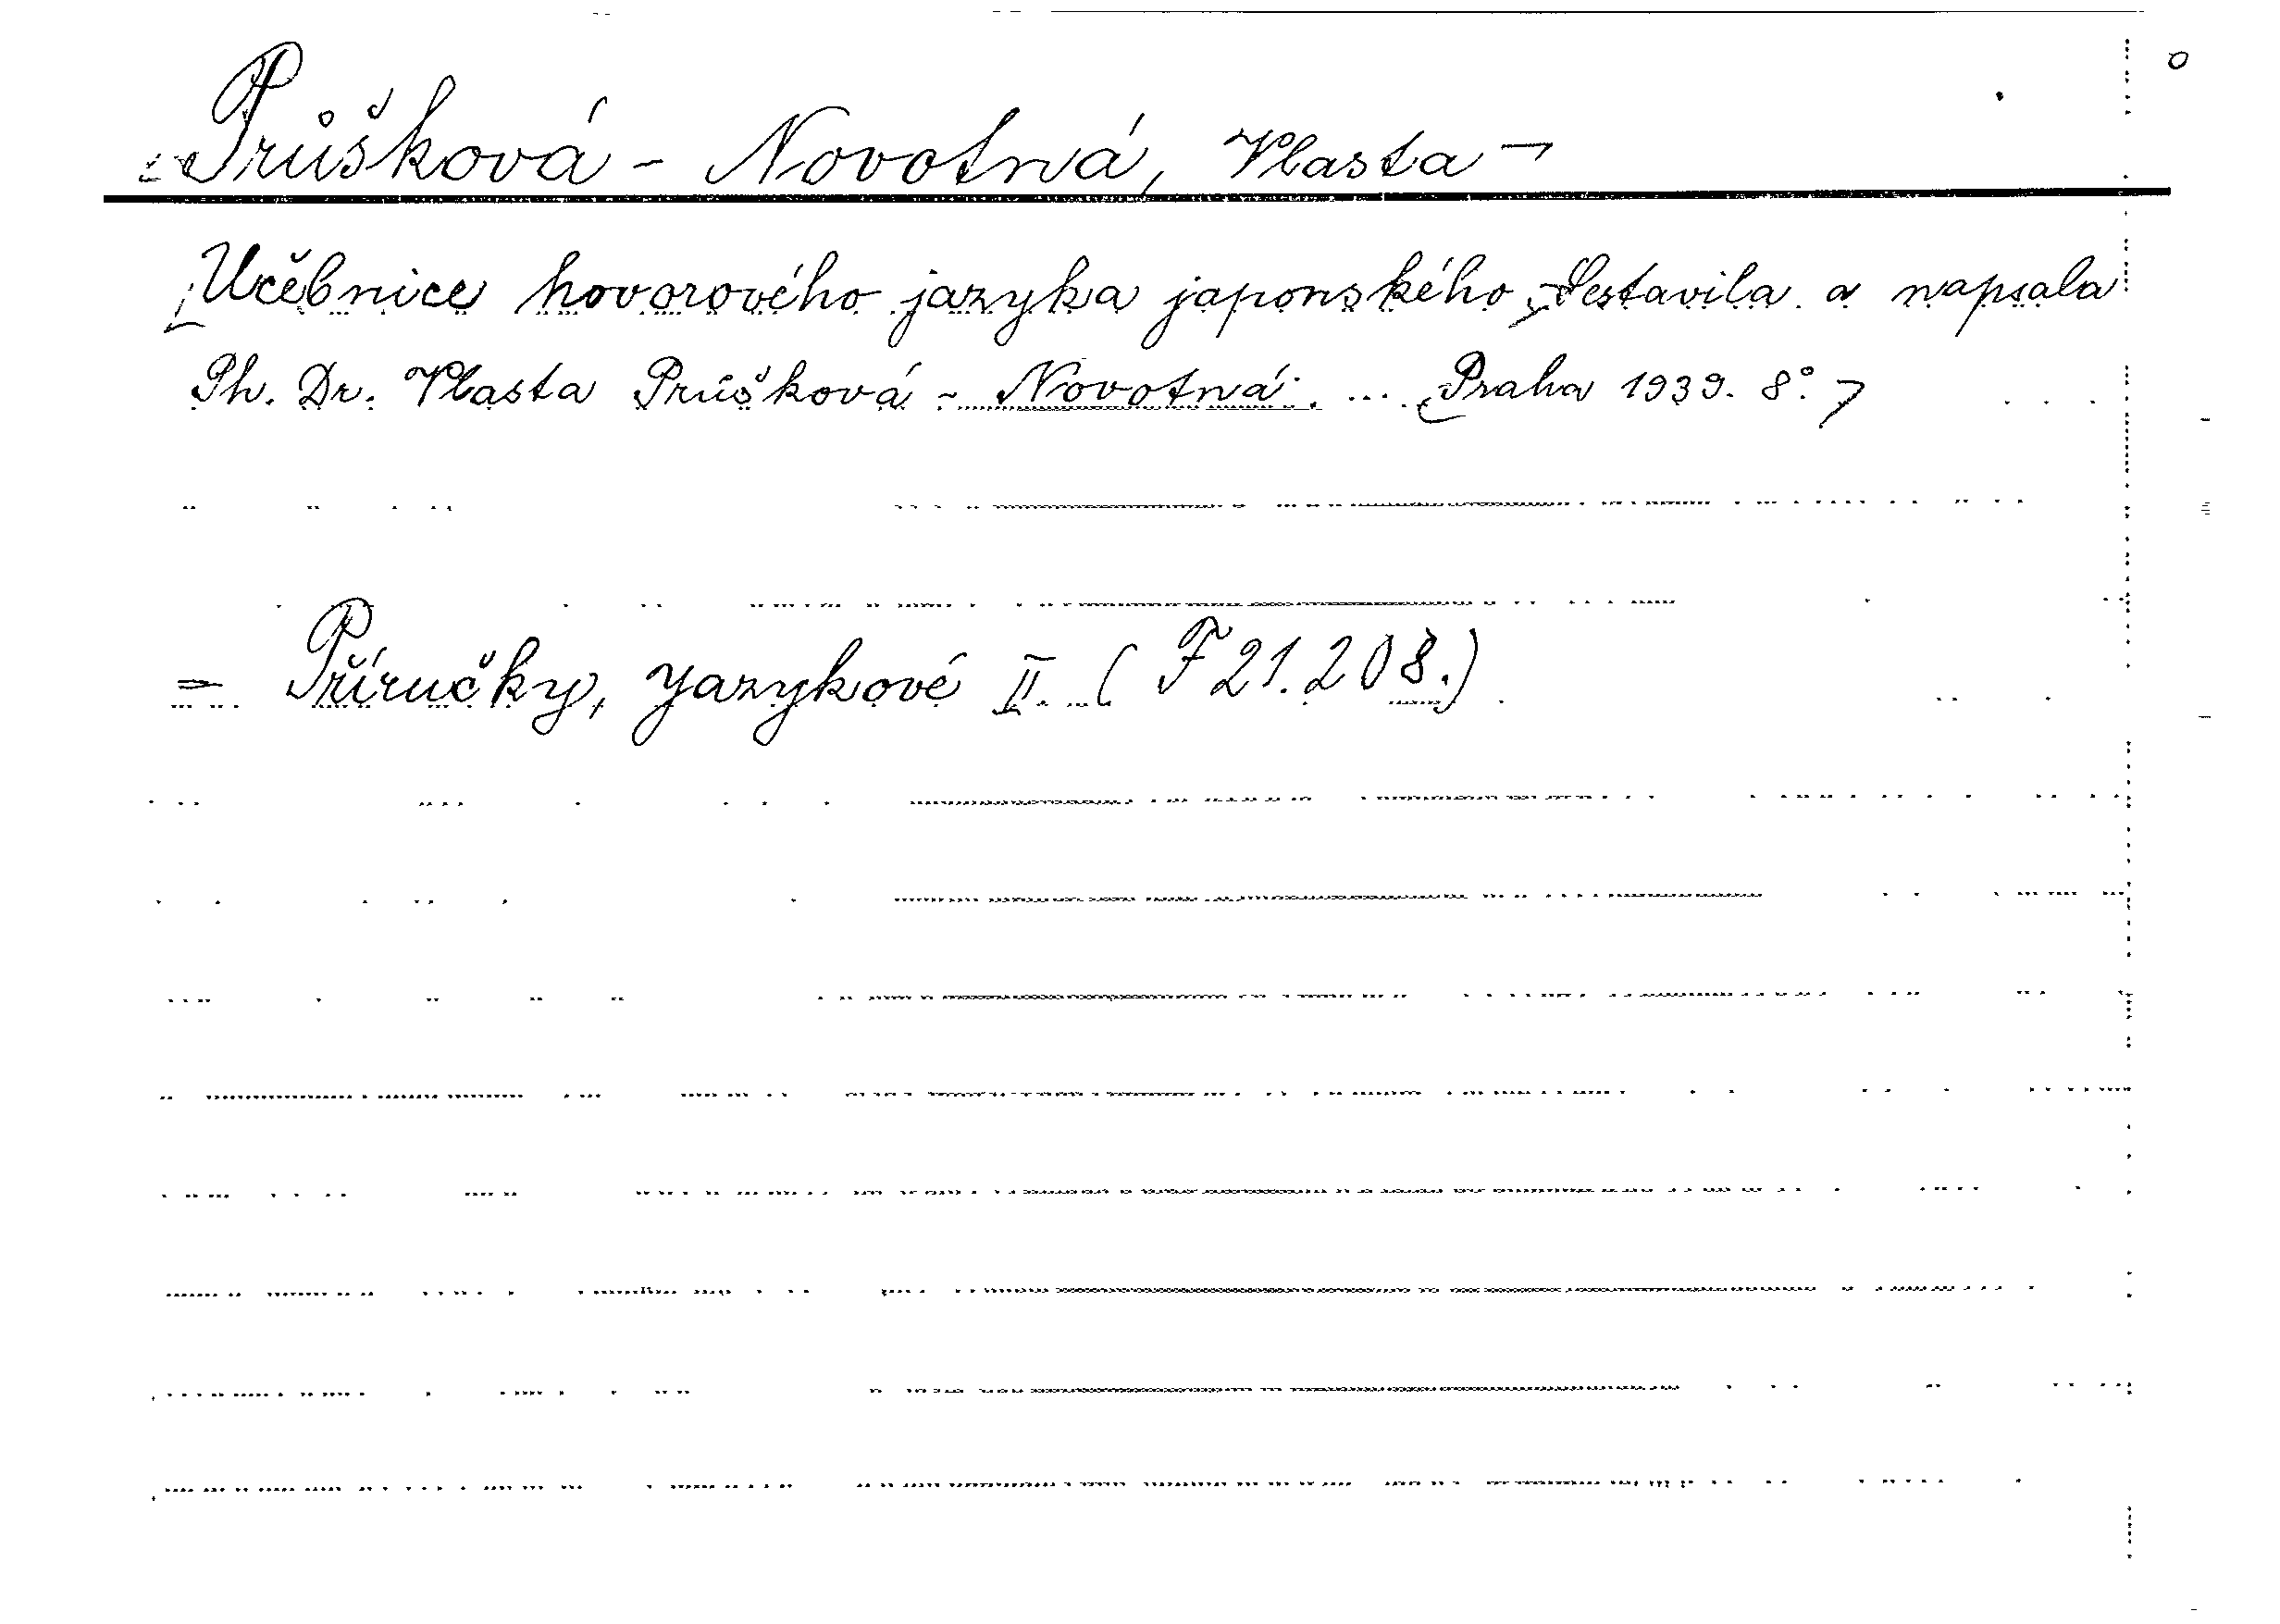 Průšková - Novotná, Vlasta
Učebnice hovorového jazyka japonského. Sestavila a napsala
Ph. Dr. Vlasta Průšková - Novotná. ... Praha 1939. 8°.
= Příručky, jazykové II. (F 21.208.)